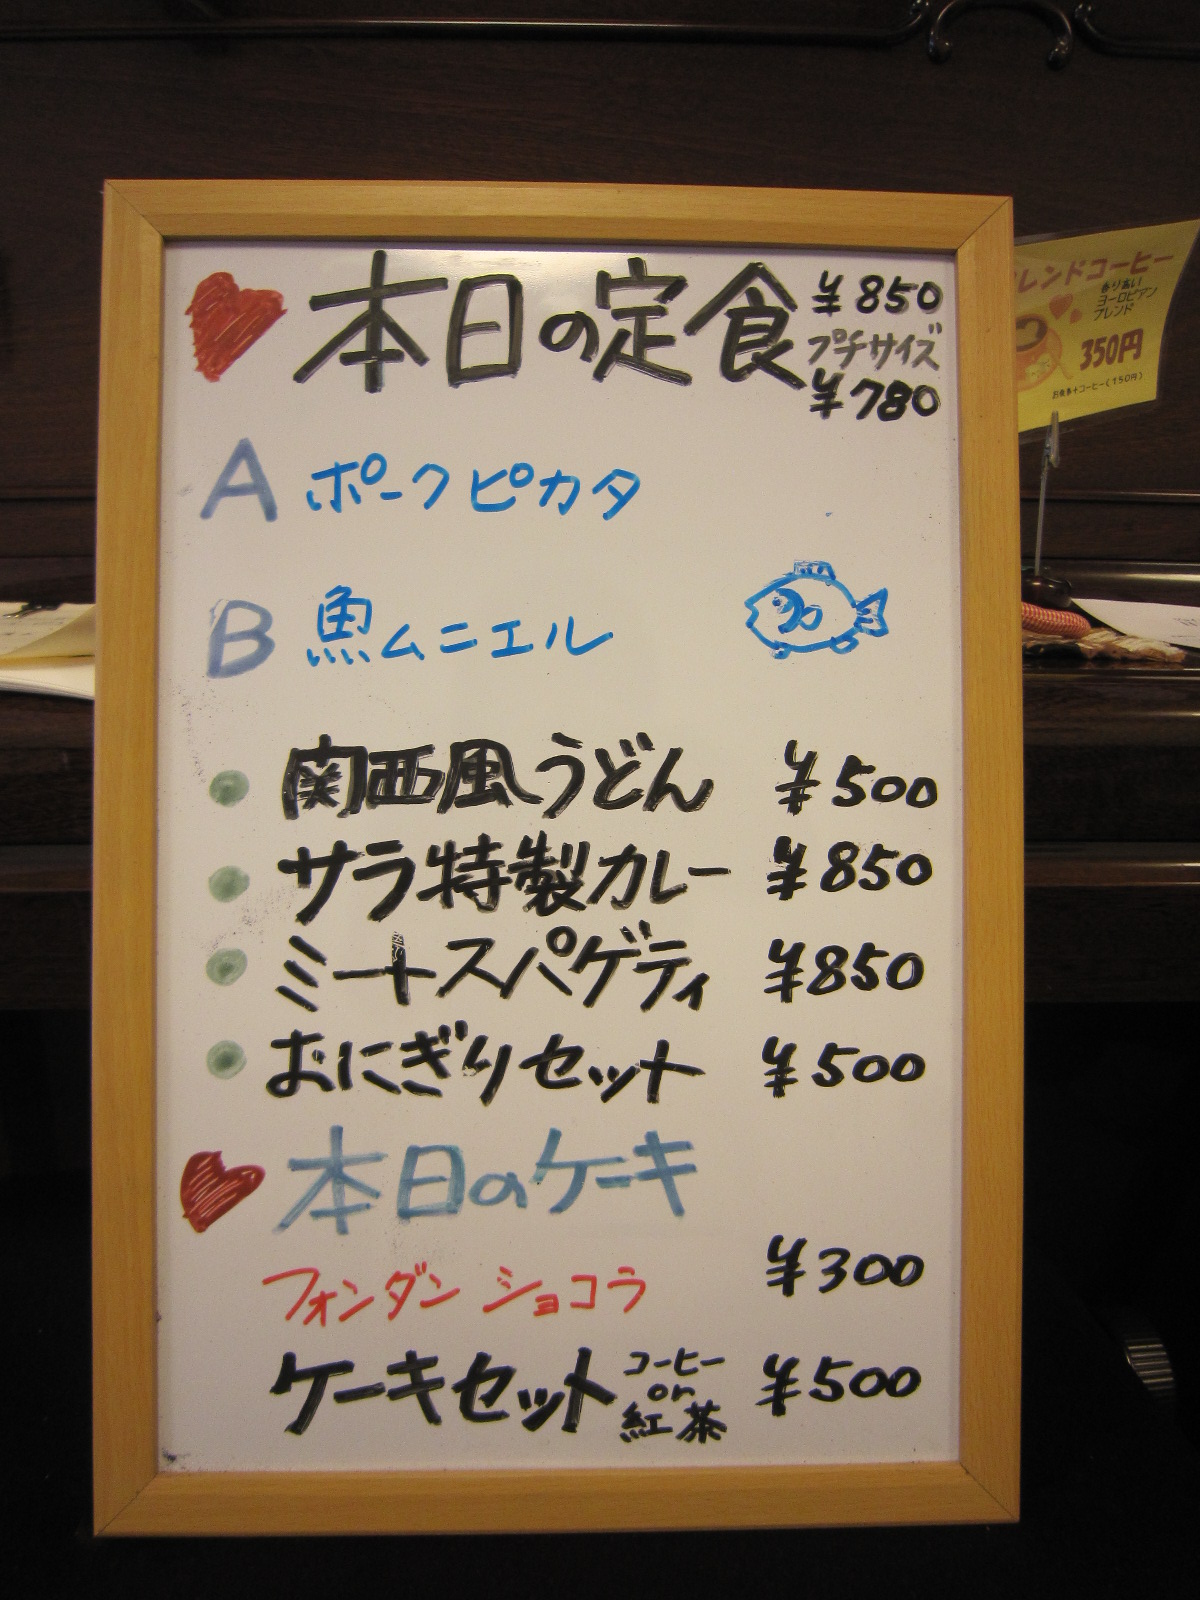 本日の定食 ¥850
プチサイズ
¥780
A ポークピカタ
B 魚ムニエル
関西風うどん ¥500
サラ特製カレー ¥850
ミートスパゲティ ¥850
おにぎりセット ¥500
本日のケーキ
フォンダン ショコラ ¥300
ケーキセット コーヒー or 紅茶 ¥500
レンドコーヒー
ヨーロピアン
ブレンド
350円
お食事+コーヒー(150円)